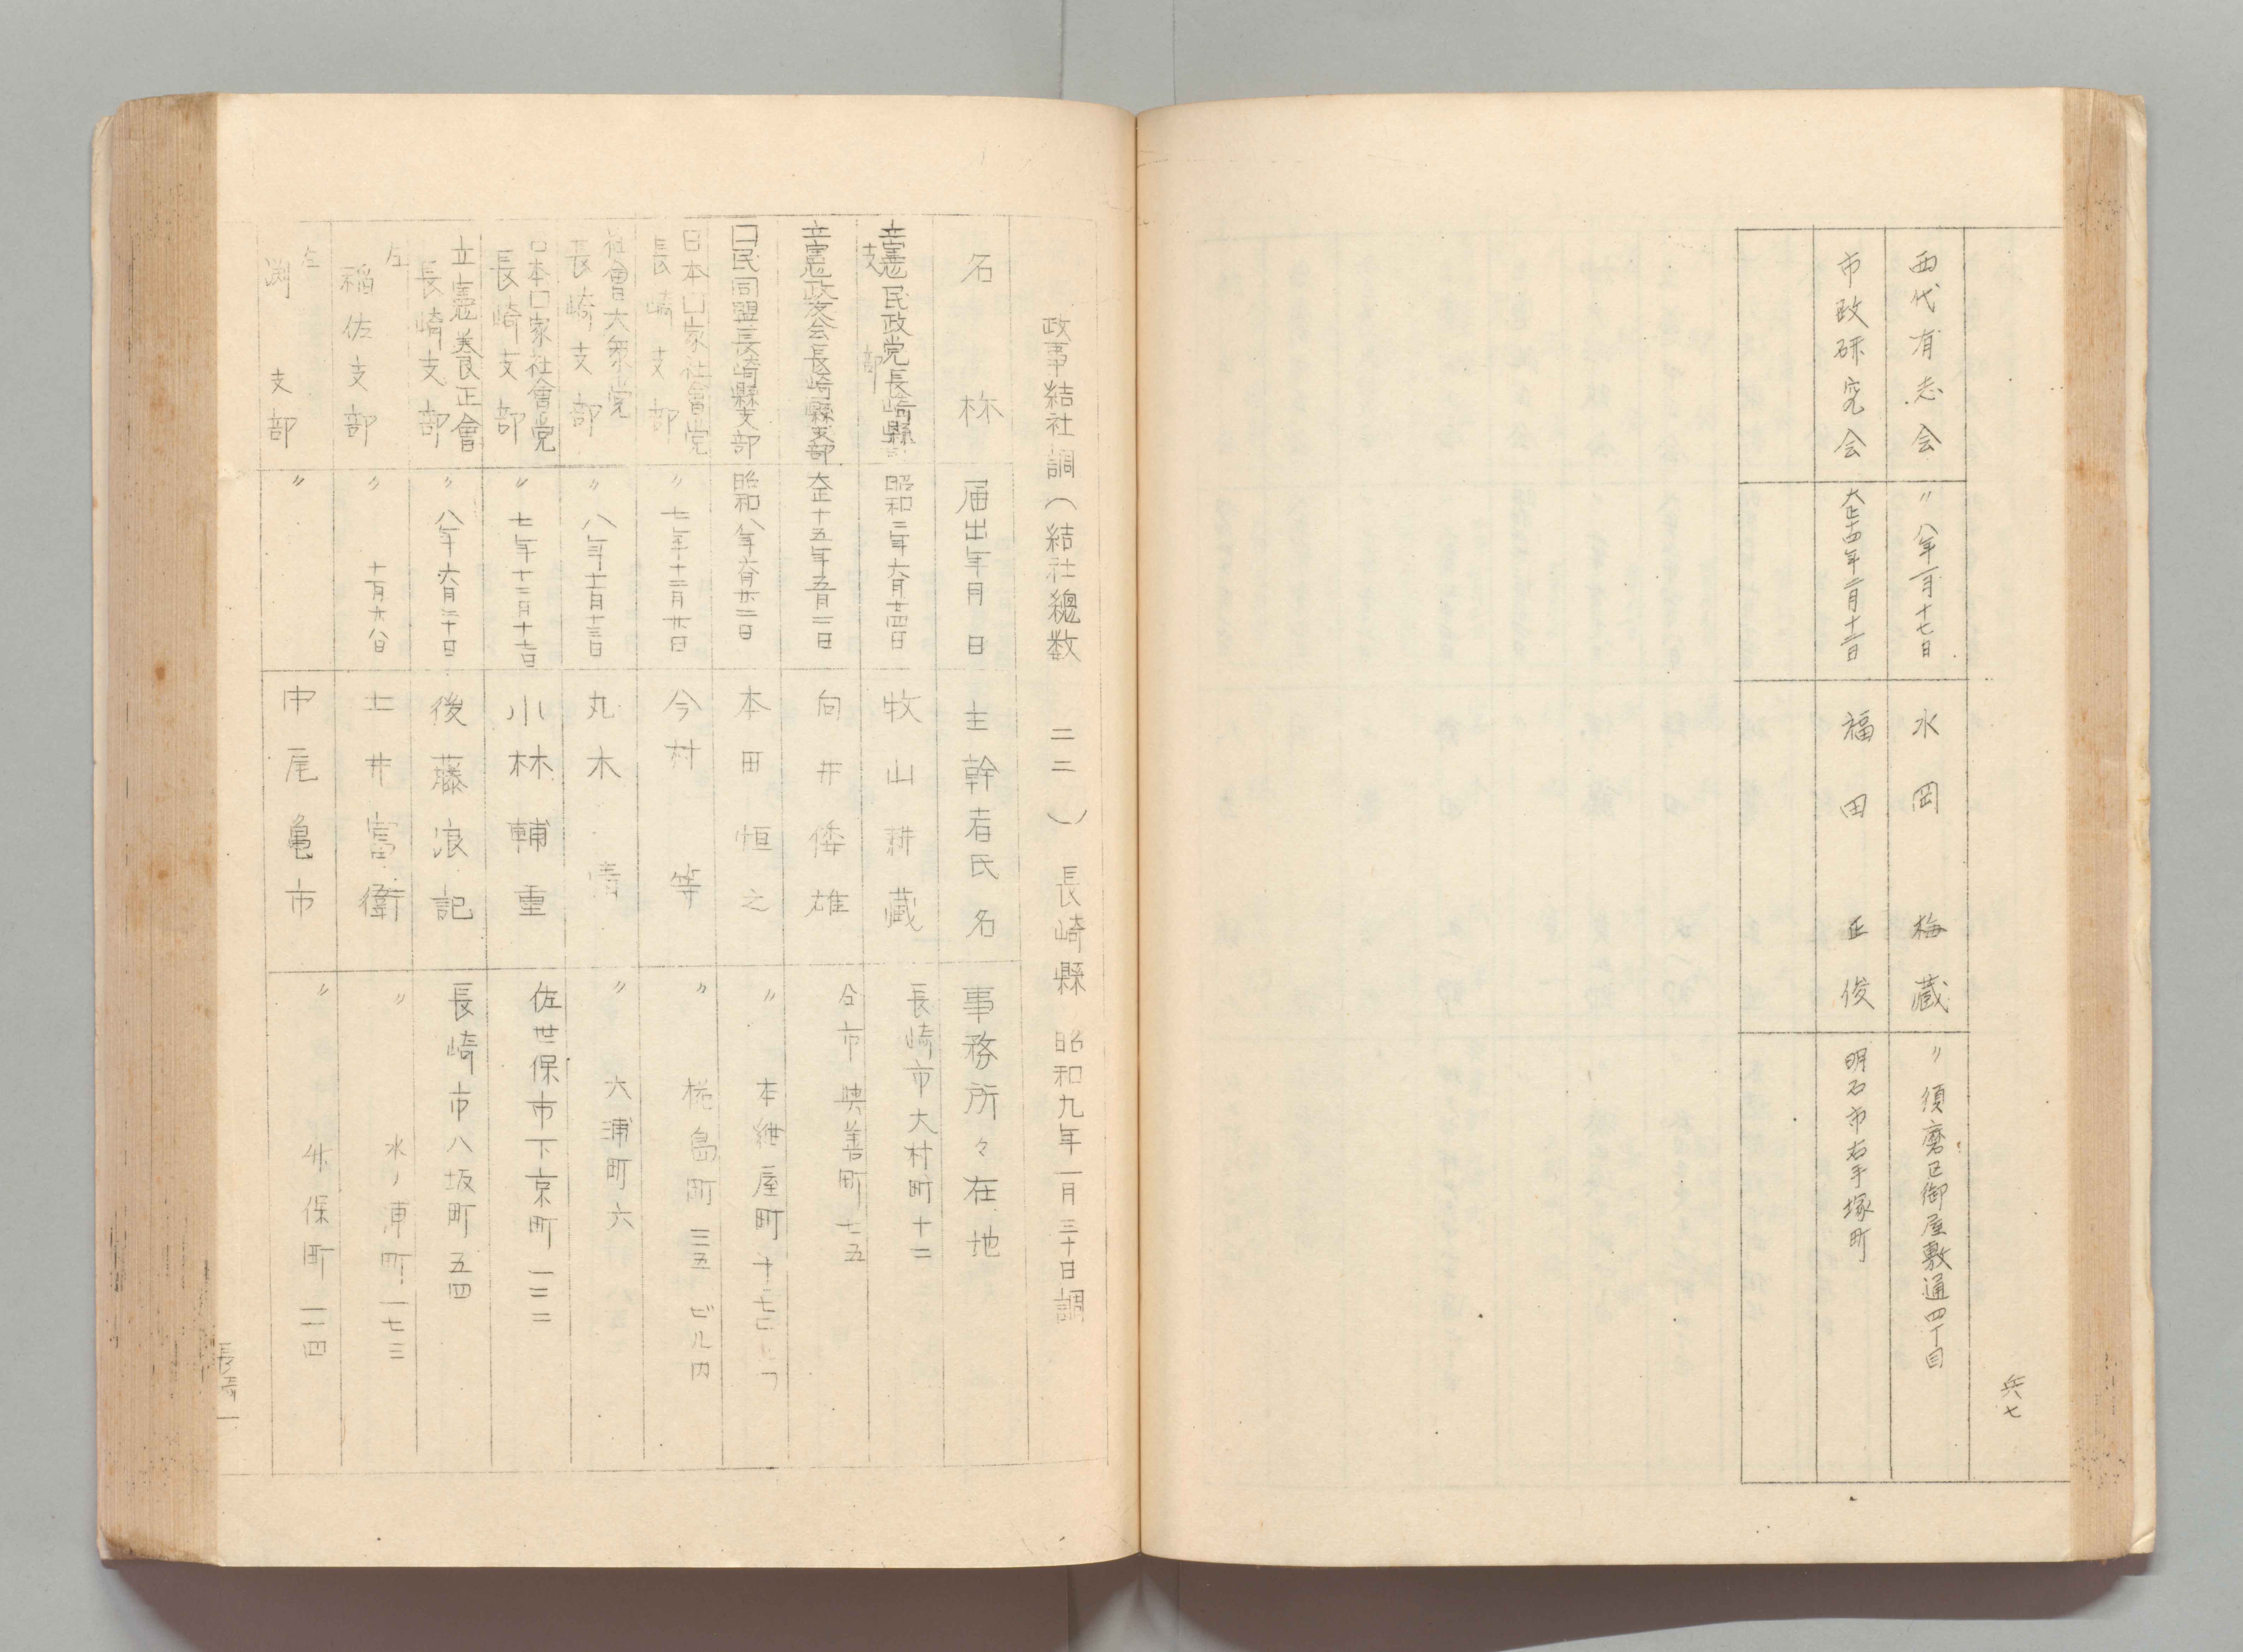 兵七
西代有志会 〃八年一月十七日 水岡梅蔵 〃須磨区御屋敷通四丁目
市政研究会 大正十四年二月十二日 福田正俊 明石市右手塚町
政事結社調(結社総数 二二) 長崎縣 昭和九年一月三十日調
名称 届出年月日 主幹者氏名 事務所々在地
立憲民政党長崎縣支部 昭和二年六月十四日 牧山耕蔵 長崎市大村町十二
立憲政友会長崎縣支部 大正十五年五月二日 向井倭雄 仝市興善町七五
囗民同盟長崎縣支部 昭和八年六月廿二日 本田恒之 〃本紺屋町
日本囗家社會党長崎支部 〃七年十二月廿日 今村等 〃椛島町三五ビル内
社會大衆党長崎支部 〃八年 丸木 〃大浦町六
日本囗家社會党長崎支部 〃七年十二月十 日 小林輔重 佐世保市下京町一二二
立憲養正會長崎支部 〃八年六月二十日 後藤浪記 長崎市八坂町五四
仝稲佐支部 〃十一月 八日 土井富衛 〃水ノ浦町一七三
仝渕支部 〃 中尾亀市 〃 保町一一四
長崎一